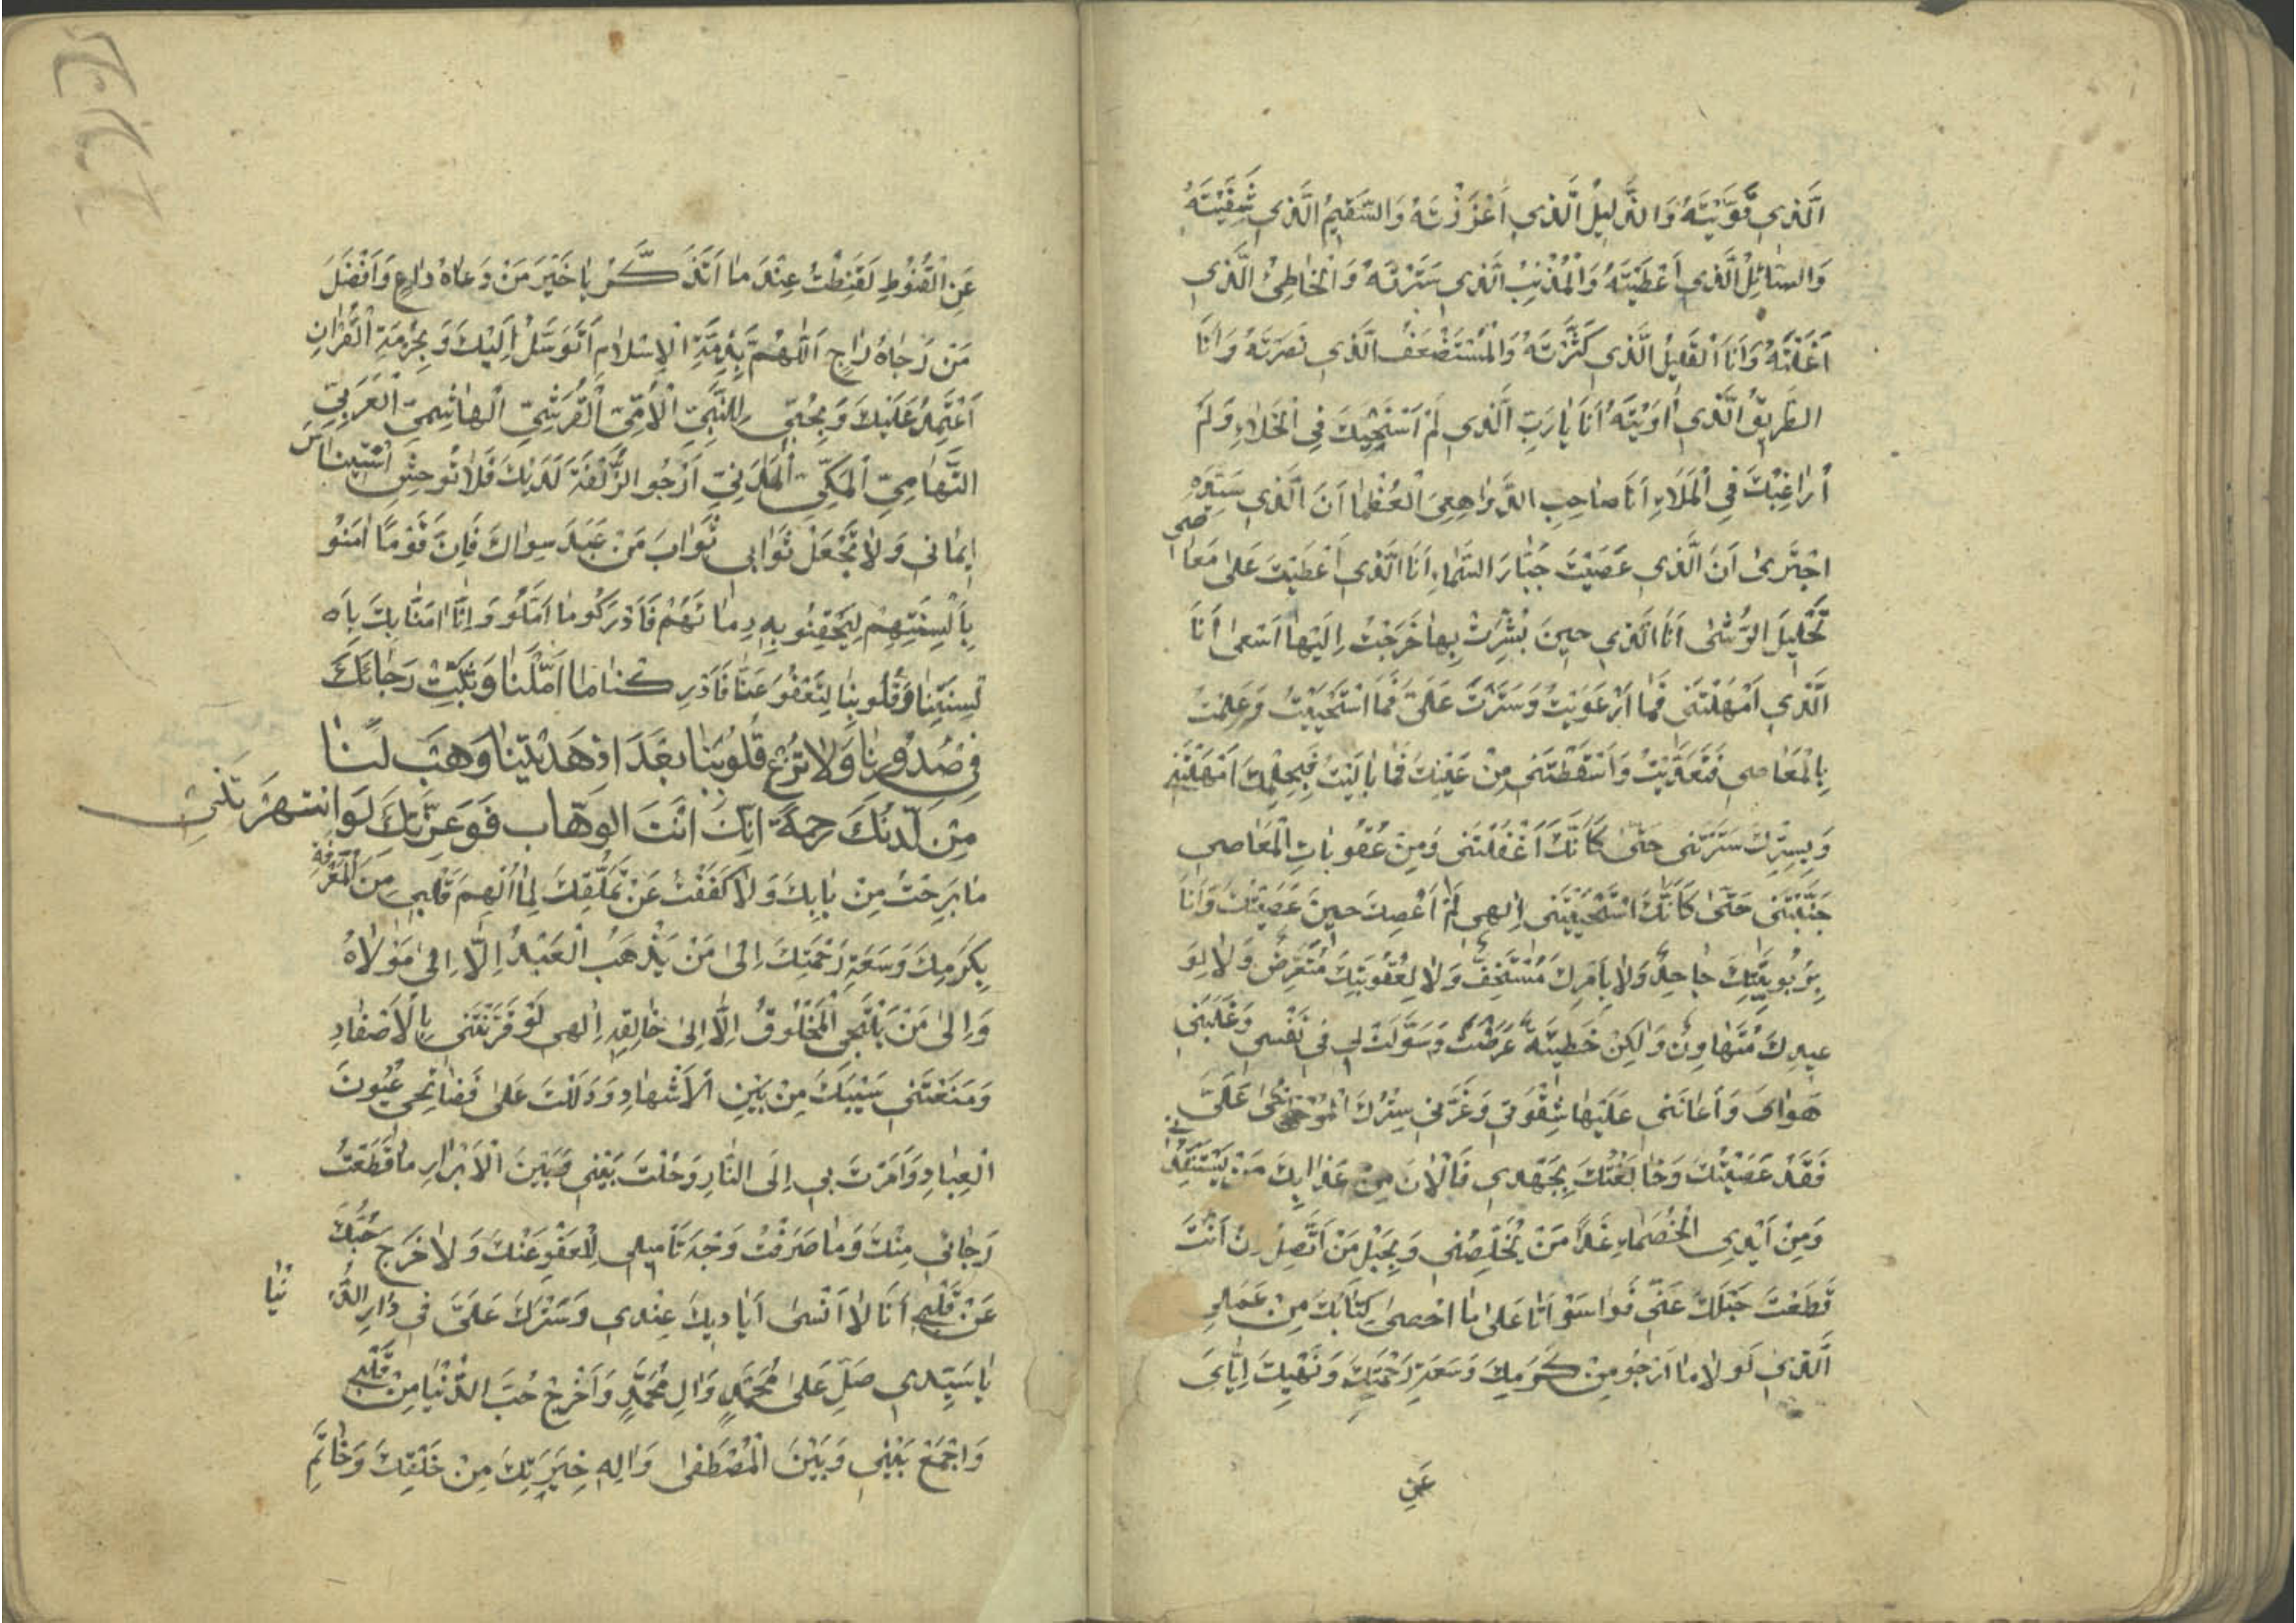 اَلَّذي قَوَّيْتَهُ وَالذَّليلُ الَّذي اَعْزَزْتَهُ وَالسَّقيمُ الَّذي شَفَيْتَهُ
وَالسّائِلُ الَّذي اَعْطَيْتَهُ وَالْمُذْنِبُ الَّذي سَتَرْتَهُ وَالْخاطِئُ الَّذي
اَقَلْتَهُ وَاَنَا الْقَليلُ الَّذي كَثَّرْتَهُ وَالْمُسْتَضْعَفُ الَّذي نَصَرْتَهُ وَاَنَا
الطَّريقُ الَّذي اٰوَيْتَهُ اَنَا يارَبِّ الَّذي لَمْ اَسْتَحْيِكَ فِي الْخَلاءِ وَلَمْ
اُراغِبْكَ فِي الْمَلاءِ اَنَا صاحِبِ الدَّواهِيَ الْعُظْما اَنَ الَّذي سَيِّدِهِ
اجْتَرىٰ اَنَ الَّذي عَصَيْتَ جَبّارَ السَّماءِ اَنَا الَّذي اَعْطَيْتَ عَلىٰ مَعاصي
تَحْليلَ الرُّشىٰ اَنَا الَّذي حينَ بُشِّرْتُ بِها خَرَجْتُ اِلَيْها اَسْعىٰ اَنَا
الَّذي اَمْهَلْتَني فَما ارْعَوَيْتُ وَسَتَرْتَ عَلَيَّ فَمَا اسْتَحْيَيْتُ وَعَلِمْتُ
بِالْمَعاصي فَتَعَدَّيْتُ وَاَسْقَطْتَني مِنْ عَيْنِكَ فَما بالَيْتُ فَبِحِلْمِكَ اَمْهَلْتَني
وَبِسِتْرِكَ سَتَرْتَني حَتّىٰ كَاَنَّكَ اَغْفَلْتَني وَمِنْ عُقُوباتِ الْمَعاصي
جَنَّبْتَني حَتّىٰ كَاَنَّكَ اسْتَحْيَيْتَني اِلهي لَمْ اَعْصِكَ حينَ عَصَيْتُكَ وَاَنَا
بِرُبُوبِيَّتِكَ جاحِدٌ وَلا بِاَمْرِكَ مُسْتَخِفٌّ وَلا لِعُقُوبَتِكَ مُتَعَرِّضٌ وَلا لِوَ
عيدِكَ مُتَهاوِنٌ وَلٰكِنْ خَطيئَةٌ عَرَضَتْ وَسَوَّلَتْ لي في نَفْسي وَغَلَبَني
هَوايَ وَاَعانَني عَلَيْها شِقْوَتي وَغَرَّني سِتْرُكَ الْمُرْخىٰ عَلَيَّ
فَقَدْ عَصَيْتُكَ وَخالَفْتُكَ بِجَهْدي فَالْاٰنَ مِنْ عَذابِكَ مَنْ يَسْتَنْقِذُني
وَمِنْ اَيْدِي الْخُصَماءِ غَداً مَنْ يُخَلِّصُني وَبِحَبْلِ مَنْ اَتَّصِلُ اِنْ اَنْتَ
قَطَعْتَ حَبْلَكَ عَنّي فَواسَوْاَتا عَلىٰ ما اَحْصىٰ كِتابُكَ مِنْ عَمَلي
اَلَّذي لَولا ما اَرْجُو مِنْ كَرَمِكَ وَسَعَةِ رَحْمَتِكَ وَنَهْيِكَ اِيّايَ
عَنِ
عَنِ الْقُنُوطِ لَقَنِطْتُ عِنْدَ ما اَتَذَكَّرُ يا خَيْرَ مَنْ دَعاهُ داعٍ وَاَفْضَلَ
مَنْ رَجاهُ راجٍ اَللّهُمَّ بِذِمَّةِ الْاِسْلامِ اَتَوَسَّلُ اِلَيْكَ وَبِحُرْمَةِ الْقُرْاٰنِ
اَعْتَمِدُ عَلَيْكَ وَبِحُبِّي لِلنَّبِيِّ الْاُمِّيِّ الْقُرَشِيِّ الْهاشِمِيِّ الْعَرَبِيِّ
التَّهامِيِّ الْمَكِّيِّ الْمَدَنِيِّ اَرْجُو الزُّلْفَةَ لَدَيْكَ فَلا تُوحِشْ اسْتيناسَ
ايماني وَلا تَجْعَلْ ثَوابي ثَوابَ مَنْ عَبَدَ سِواكَ فَاِنَّ قَوْمًا اٰمَنُو
بِاَلْسِنَتِهِمْ لِيَحْقِنُو بِهِ دِمائَهُمْ فَاَدْرَكُو ما اَمَّلُو وَاِنّا اٰمَنّا بِكَ بِاَ
لْسِنَتِنا وَقُلُوبِنا لِتَعْفُوَ عَنّا فَاَدْرِكنا ما اَمَّلْنا وَثَبِّتْ رَجائَكَ
في صُدُورِنا وَلا تُزِغْ قُلُوبَنا بَعْدَ اِذْ هَدَيْتَنا وَهَبْ لَنا
مِنْ لَدُنْكَ رَحمَةً اِنَّكَ اَنْتَ الوَهّاب فَوَعِزَّتِكَ لَوِ انتهَرْتَني
ما بَرِحْتُ مِنْ بابِكَ وَلا كَفَفْتُ عَنْ تَمَلُّقِكَ لِما اُلْهِمَ قَلْبي مِنَ الْمَعْرِفَةِ
بِكَرَمِكَ وَسَعَةِ رَحْمَتِكَ اِلىٰ مَنْ يَذْهَبُ الْعَبْدُ اِلّا اِلىٰ مَوْلاهُ
وَاِلىٰ مَنْ يَلْتَجِي الْمَخْلُوقُ اِلّا اِلىٰ خالِقِهِ اِلهي لَوْ قَرَنْتَني بِالْاَصْفادِ
وَمَنَعْتَني سَيْبَكَ مِنْ بَيْنِ الْاَشْهادِ وَدَلَلْتَ عَلىٰ فَضائِحي عُيُونَ
الْعِبادِ وَاَمَرْتَ بي اِلَى النّارِ وَحُلْتَ بَيْني وَبَيْنَ الْاَبْرارِ ما قَطَعْتُ
رَجائي مِنْكَ وَما صَرَفْتُ وَجْهَ تَأميلي لِلْعَفْوِ عَنْكَ وَلا خَرَجَ حُبُّكَ
عَنْ قَلْبي اَنَا لا اَنْسىٰ اَياديكَ عِنْدي وَسَتْرَكَ عَلَيَّ في دارِ الدُّنْيا
يا سَيِّدي صَلِّ عَلىٰ مُحَمَّدٍ وَاٰلِ مُحَمَّدٍ وَاَخْرِجْ حُبَّ الدُّنْيا مِنْ قَلْبي
وَاجْمَعْ بَيْني وَبَيْنَ الْمُصْطَفىٰ وَاٰلِهِ خِيَرَتِكَ مِنْ خَلْقِكَ وَخاتَمِ